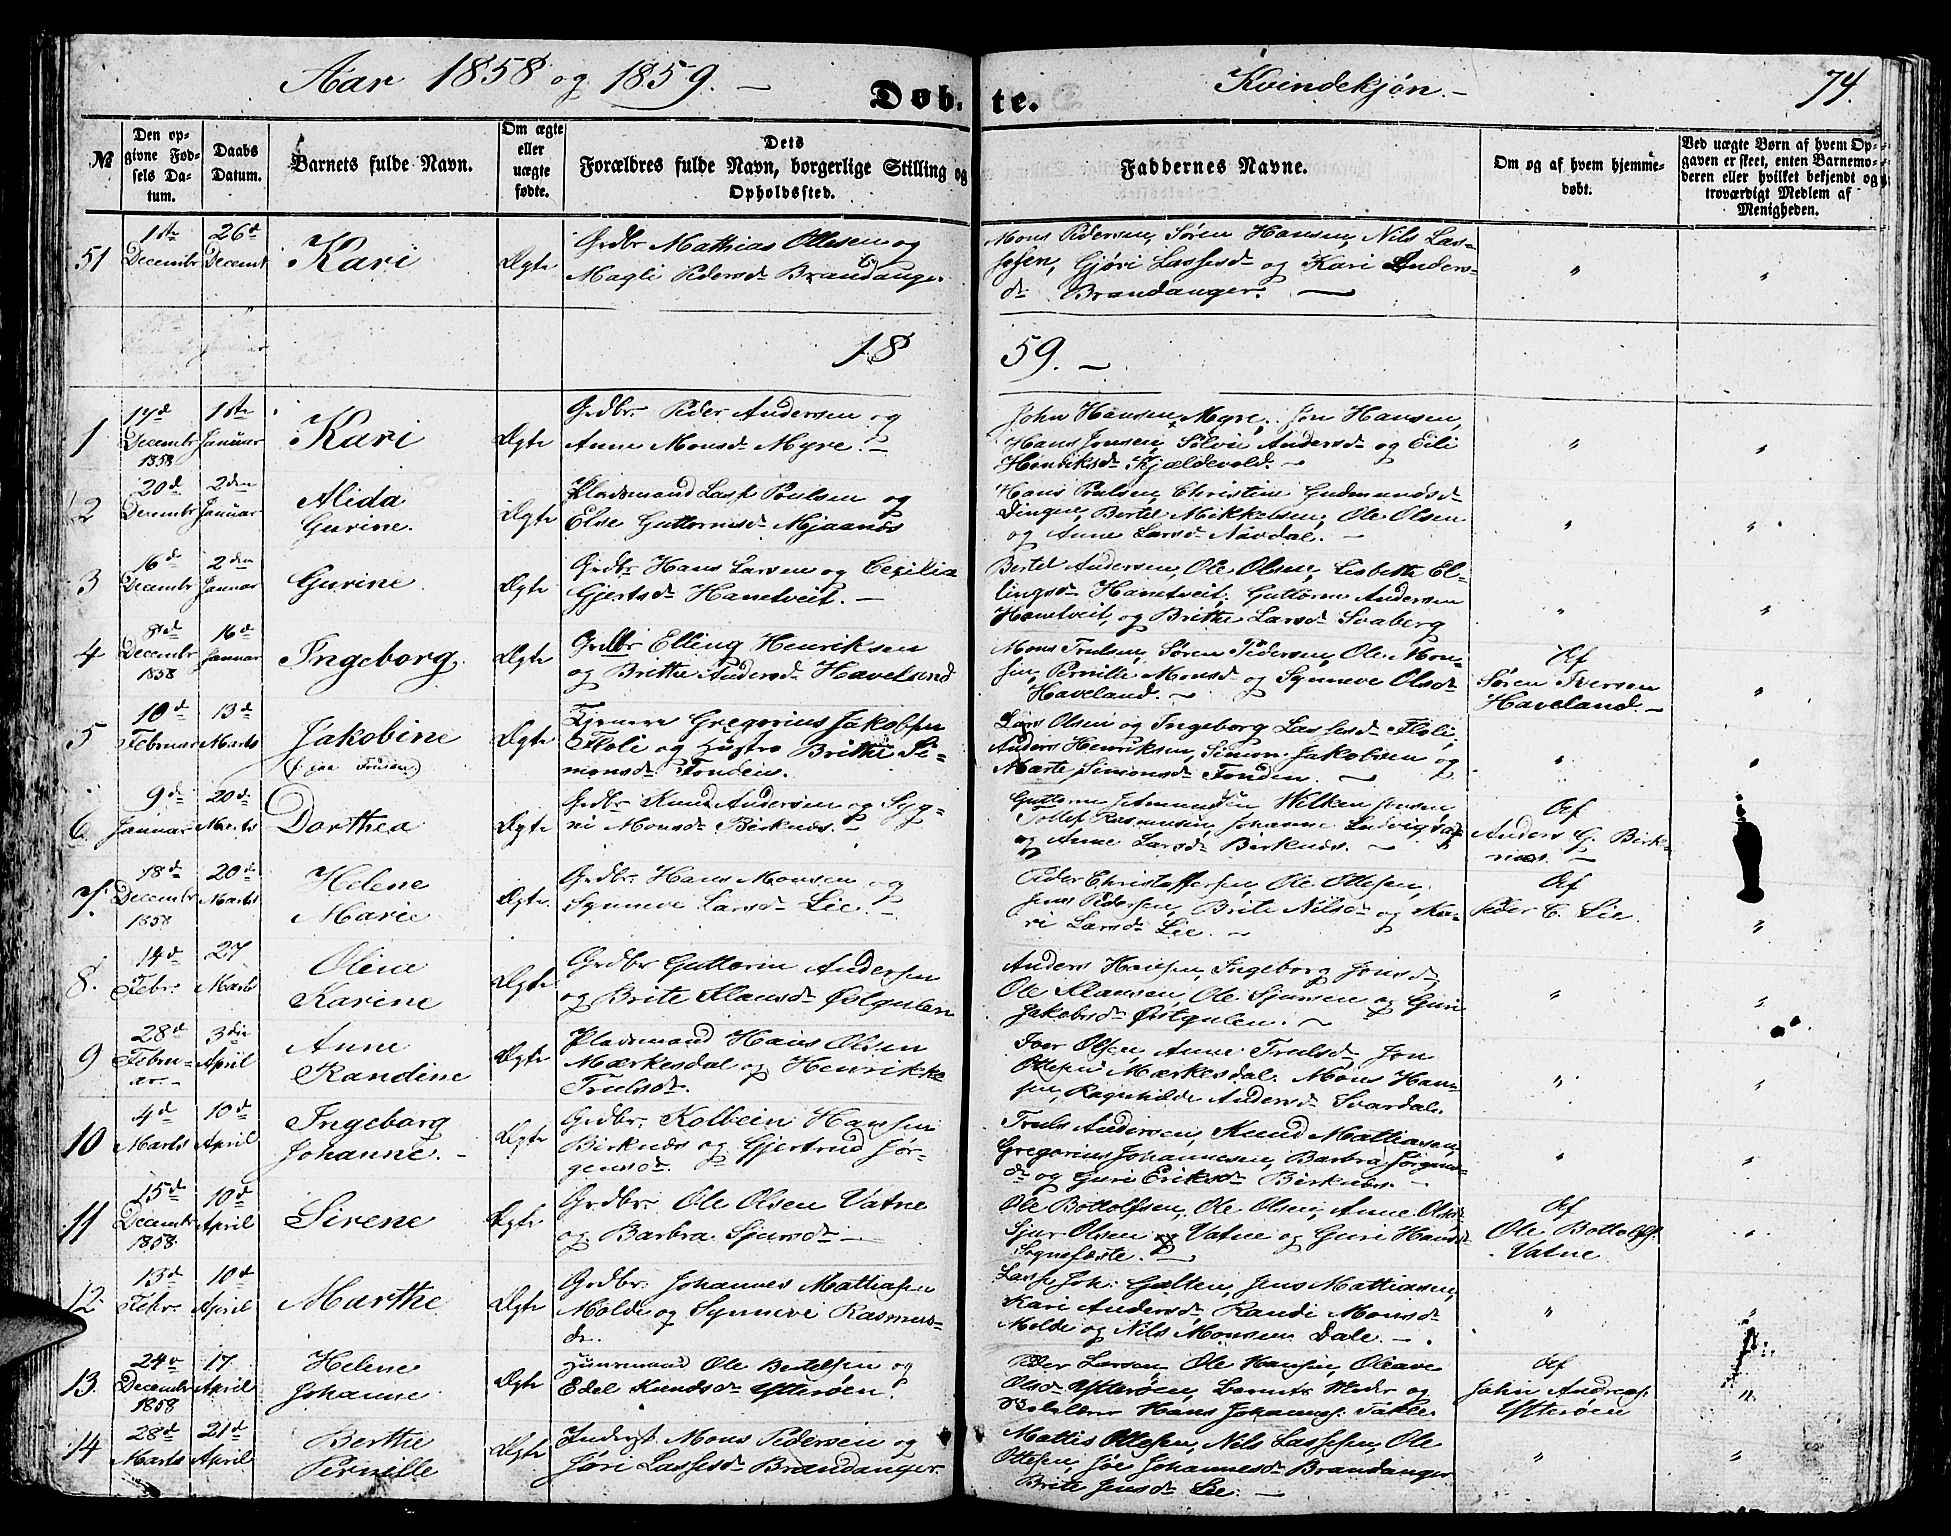 Aar 1858 og 1859. —
Døbte.
Kvindekjøn. —
74.
№
Den opgivne Fødsels Datum.
Daabs Datum.
Barnets fulde Navn.
Om ægte eller uægte fødte.
Dets Forældres fulde Navn, borgerlige Stilling og Opholdssted.
Faddernes Navne.
Om og af hvem hjemmedøbt.
Ved uægte Børn af hvem Opgaven er skeet, enten Barnemoderen eller hvilket bekjendt og troværdigt Medlem af Menigheden.
51
1ste Decembr
26d Decemb
Kari
Ægte
Grdbr Mathias Ottesen og
Magli Pedersd. Brandanger.
Mons Pedersen, Søren Hansen, Nils Las-
sesen, Gjøri Lassesd. og Kari Anders-
d. Brandanger. —
18
59. —
1
17d Decembr 1858
1ste Januar
Kari
Ægte
Grdbr. Peder Andersen og
Anne Monsd. Myre. —
John Hansen Myre, Jon Hansen,
Hans Jonsen, Sølvie Andersd. og Eili
Henriksd. Kjældevold. —
2
20d Decembr
2den Januar
Alida
Gurine.
Ægte
Pladsmand Lasse Poulsen og
Else Guttormsd. Mjaanæs
Hans Poulsen, Christine Gudmundsd.
Dingen, Bertel Mikkelsen, Ole Olsen
og Anne Larsd. Nävdal. —
3
16d Decembr
2den Januar
Gurine
Ægte
Grdbr. Hans Larsen og Cecilia
Gjertsd. Hantveit. —
Bertel Andersen, Ole Olsen, Lisbeth El-
lingsd. Hantveit, Guttorm Andersen
Hantveit, og Brithe Larsd. Svaberg
4
8d Decembr 1858
16d Januar
Ingeborg
Ægte
Grdbr Elling Henriksen
og Brithe Andersd. Haveland
Mons Trulsen, Søren Pedersen, Ole Mon-
sen, Pernille Monsd. og Synneve Olsd.
Haveland. —
Af
Søren Iversen
Haveland. —
5
10d Februar
13d Marts
Jakobine
Ægte
Gregorius Jakobsen
Floli og Hustro Brithe Si-
monsd. Fonden.
Lars Olsen og Ingeborg Lassesd. Floli,
Anders Henriksen, Simon Jakobsen og
Marte Simonsd. Fonden. —
6.
9d Januar
20d Marts
Dorthea
Ægte
Grdbr Knud Andersen og Syg-
ni Monsd. Birknæs. —
Guttorm Wilken
Tollef Rasmussen, Johanne Ludvigsd.
og Anne Larsd. Birknæs. —
Af
Anders G. Birk-
næs. —
7.
18d Decembr 1858
20d Marts
Helene
Marie
Ægte
Grdbr. Hans Monsen og
Synneve Larsd. Lie. —
Peder Christoffersen, Ole Ottesen,
Jens Pedersen, Brite Nilsd. og Ka-
ri Larsd. Lie. —
Af
Peder C. Lie.
8.
14d Febr.
27 Marts
Oline
Karine
Ægte
Grdbr Guttorm Andersen
og Brite Klausd. Østgulen
Anders Hansen, Ingeborg Jonsd.
Ole Klausen, Ole Sjursen og Guri
Jakobsd. Østgulen. —
9
28d Febru-
ar. —
3die April
Anne
Randine
Ægte
Pladsmand Hans Olsen
Mærkesdal og Henrikke
Trulsd.
Iver Olsen, Anne Trulsd. Jon
Ottesen Mærkesdal. Mons Han-
sen, Ragnhilde Andersd. Svardal.
10
4d Marts
10d April
Ingeborg
Johanne. —
Ægte
Grdbr. Kolbein Hansen
Birknæs og Gjertrud Jør-
gensd.
Truls Andersen, Knud Mathiasen,
Gregorius Johannesen, Barbra Jørgens-
d. og Guri Eriksd. Birknæs. —
11
15d Decembr 1858
10d April
Sirene
Ægte
Grdbr. Ole Olsen Vatne
og Barbra Sjursd. —
Ole Bottolfsen, Ole Olsen, Anne Olsd.
Sjur Olsen Vatne og Guri Hansd.
Sognefæste. —
Af
Ole Bottolfs.
Vatne
12
13d Febr.
10d April
Marthe
Ægte
Grdbr. Johannes Mathiasen
Molde og Synneve Rasmus-
d.
Lasse Joh. Galten, Jens Mathiasen,
Kari Andersd. Randi Monsd.
Molde og Nils Monsen Dale. —
13.
24d Decembr 1858
17 April
Helene
Johanne
Ægte
Huusmand Ole Bertelsen og
Edel Knudsd. Ytterøen.
Peder Larsen, Ole Hansen, Oleave
Olsd. Ytterøen, Barnets Moder og
Hans Johannes. Takle.
Af
John Andreas.
Ytterøen
14
28d Marts
21d April
Berthe
Pernille
Ægte
Inderst Mons Pedersen og
Jøri Lassesd. Brandanger
Mattis Ottesen, Nils Lassesen, Ole
Ottesen, Johannesd. Brandanger
Brite Jensd. Lie. —